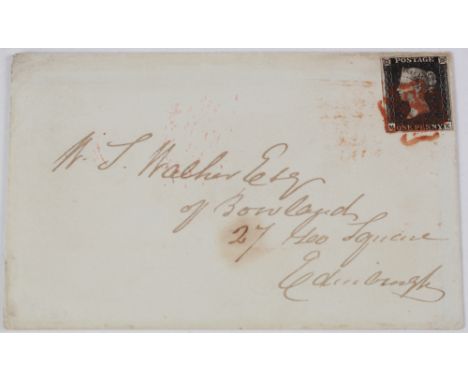 POSTAGE
ONE PENNY
W. S. Walker Esq
of Bowland
27 Geo Square
Edinburgh